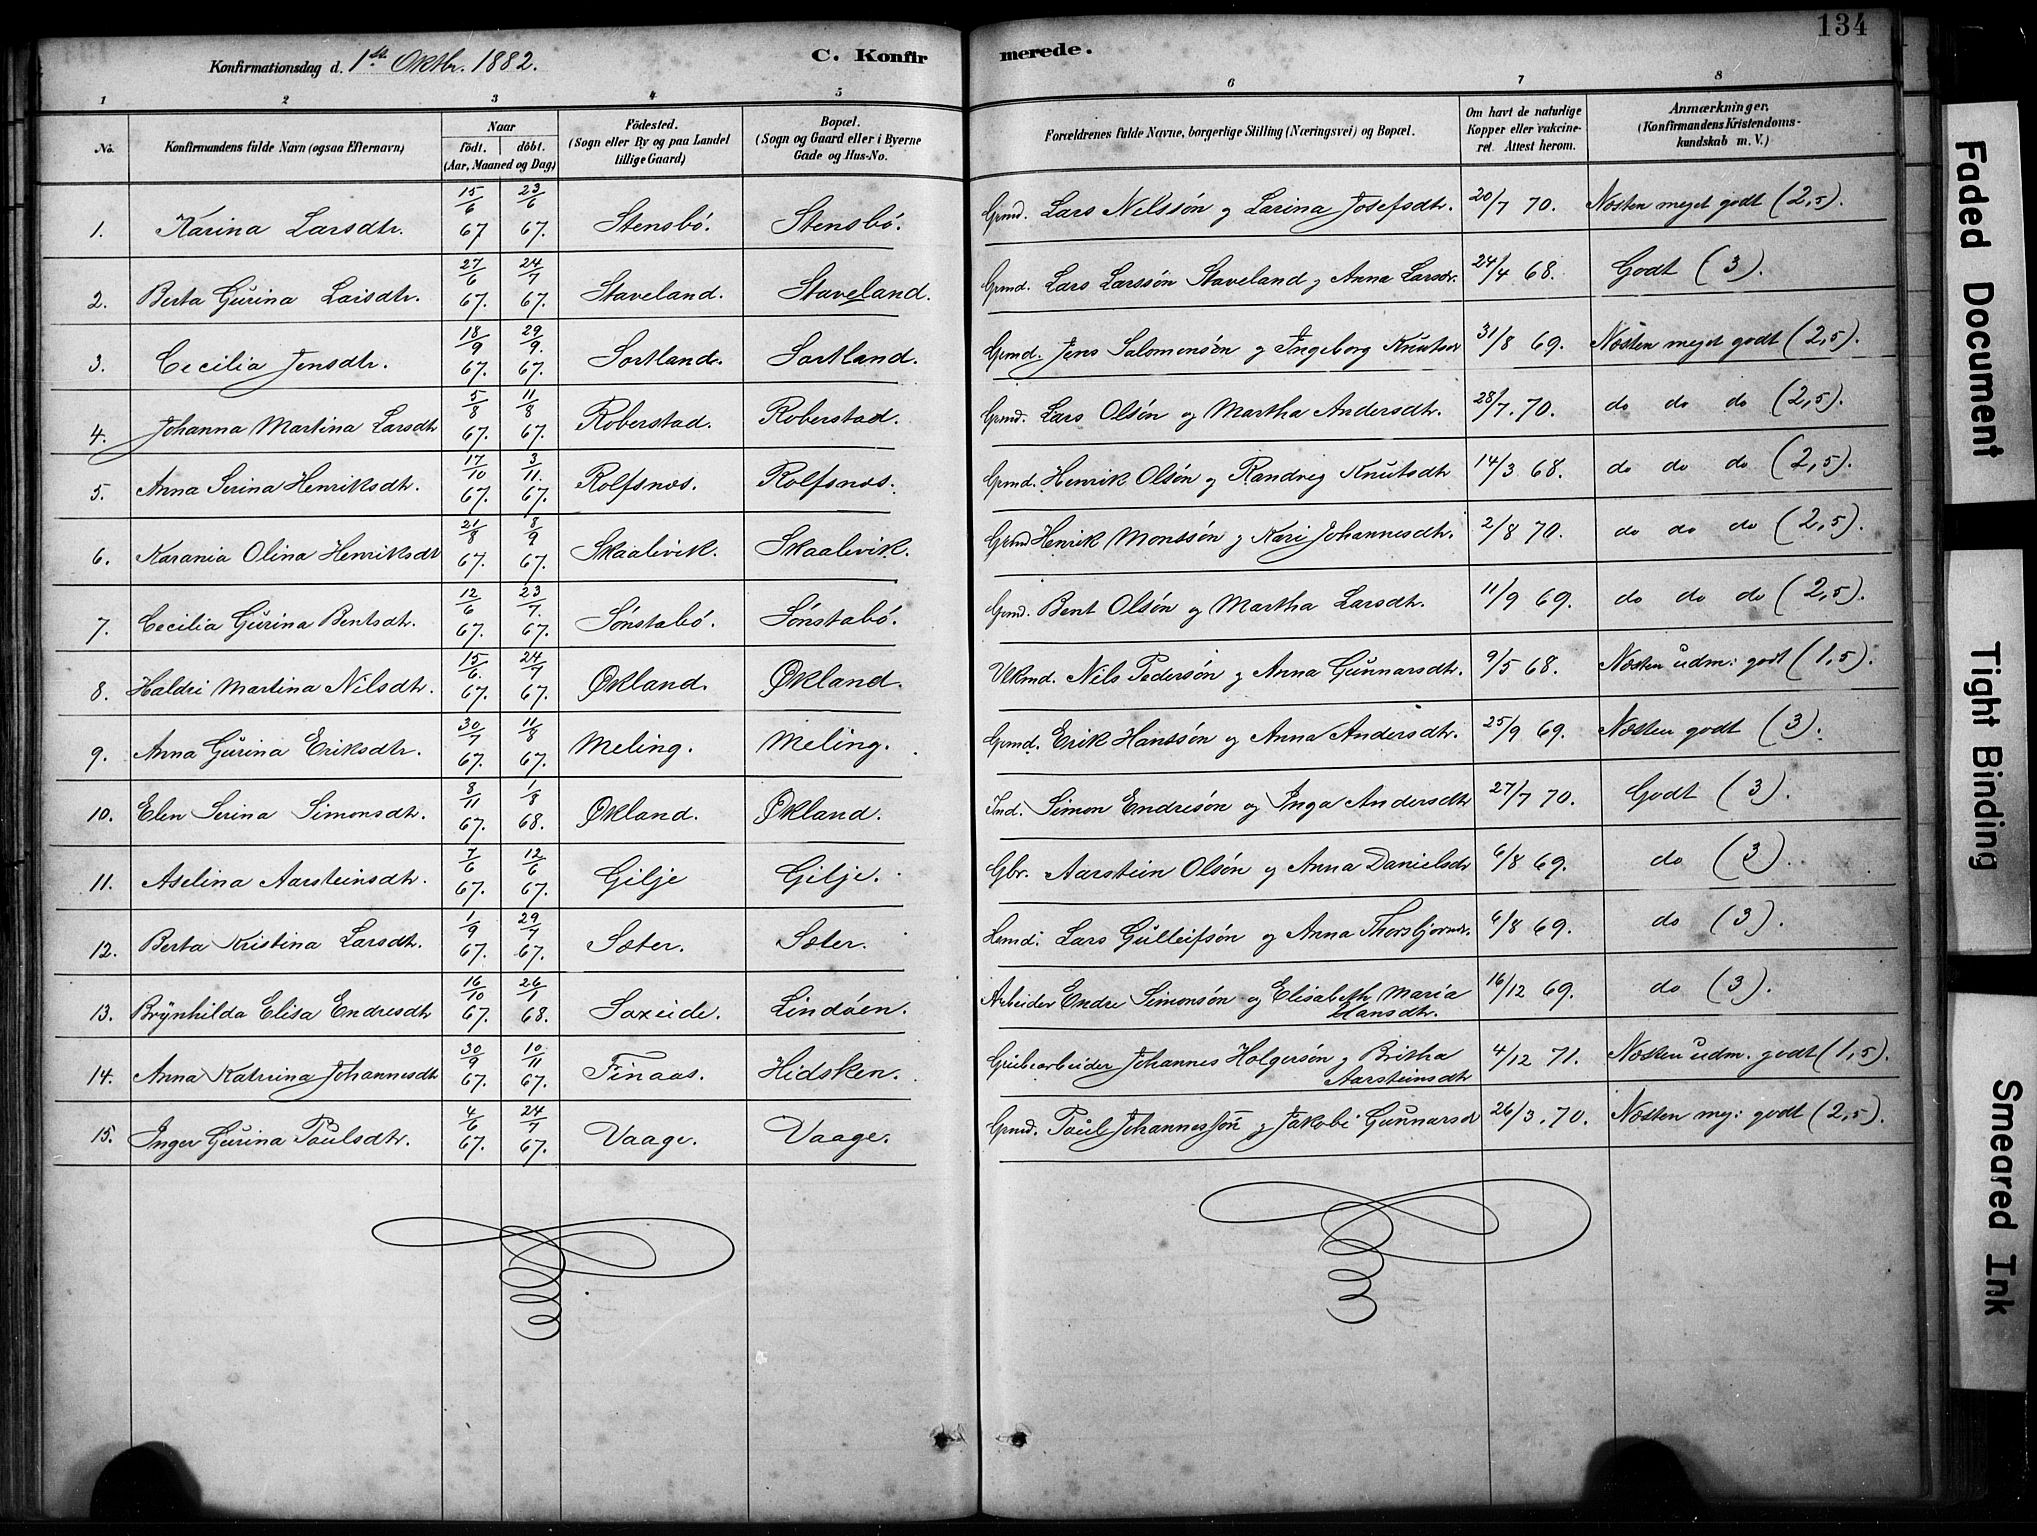 134
Konfirmationsdag d. 1ste Oktbr. 1882.
C. Konfirmerede.
1 2 3 4 5 6 7 8
No.
Konfirmandens fulde Navn (ogsaa Efternavn)
Naar
födt. döbt.
(Aar, Maaned og Dag)
Födested.
(Sogn eller By og paa Landet
tillige Gaard)
Bopæl.
(Sogn og Gaard eller i Byerne
Gade og Hus-No.
Forældrenes fulde Navne, borgerlige Stilling (Næringsvei) og Bopæl.
Om havt de naturlige
Kopper eller vakcine-
ret. Attest herom.
Anmærkninger.
(Konfirmandens Kristendoms-
kundskab m. V.)
1. Karina Larsdtr. 15/6 67 23/6 67. Stensbó. Stensbó. Grmd. Lars Nilssön og Larina Josefsdtr. 20/7 70. Næsten meget godt (2,5).
2. Berta Gurina Larsdtr. 27/6 67. 24/7 67. Staveland. Staveland. Grmd. Lars Larssön Staveland og Anna Larsdr. 24/4 68. Godt (3).
3. Cecilia Jensdtr. 18/9 67. 29/9. 67. Sortland. Sortland. Grmd. Jens Salomonsön og Ingeborg Knutsdr 31/8 69. Næsten meget godt (2,5).
4. Johanna Martina Larsdtr 5/8 67. 11/8 67. Roberstad. Roberstad. Grmd. Lars Olsön og Martha Andersdtr. 28/7. 70. do do do (2,5).
5. Anna Serina Henriksdtr. 17/10 67. 3/11. 67. Rolfsnæs. Rolfsnæs. Grmd. Henrik Olsön og Randvig Knutsdtr 14/3 68. do do do (2,5).
6. Karania Olina Henriksdtr 21/8 67. 8/9 67. Skaalevik. Skaalevik. Grmd Henrik Monssön og Kari Johannesdtr. 2/8 70. do do do (2,5).
7. Cecilia Gurina Bentsdtr. 12/6 67. 23/7. 67. Sönstabó. Sönstabó. Grmd. Bent Olsön og Martha Larsdtr. 11/9 69. do do do (2,5).
8. Haldri Martina Nilsdtr. 15/6. 67. 24/7 67. Økland. Økland. Vlkmd. Nils Pedersön og Anna Gunnarsdtr. 9/5 68. Næsten udm: godt (1,5).
9. Anna Gurina Eriksdtr. 30/7 67. 11/8 67. Meling. Meling. Grmd. Erik Hanssön og Anna Andersdtr. 25/9 69. Næsten godt (3).
10. Elen Serina Simonsdtr. 8/11 67. 1/8 68. Økland. Økland. Ind. Simon Endresön og Inga Andersdtr 27/7 70. Godt (3).
11. Aselina Aarsteinsdtr. 7/6 67. 12/6 67. Gilje Gilje. Gbr. Aarstein Olsön og Anna Danielsdr 6/8 69. do (3).
12. Berta Kristina Larsdtr. 1/9 67. 29/7 67. Sæter. Sæter. Hmd. Lars Gulleifsön og Anna Thorsbjornsdr. 6/8 69. do (3).
13. Brynhilda Elisa Endresdtr 16/10 67. 26/1 68. Saxeide. Lindöen. Arbeider Endre Simonsön og Elisabeth Maria
Hansdtr. 16/12 69. do (3).
14. Anna Katrina Johannesdtr 30/9 67. 10/11 67. Finaas. Hidsken. Grubearbeider Johannes Holgersön og Britha
Aarsteinsdtr 4/12 71. Næsten udm. godt (1,5).
15. Inger Gurina Poulsdtr. 4/6 67. 24/7 67. Vaage. Vaage. Grmd. Poul Johannessön og Jakobi Gunnarsdr 26/3. 70. Næsten mej: godt (2,5).
Faded Document
Tight Binding
Smeared Ink